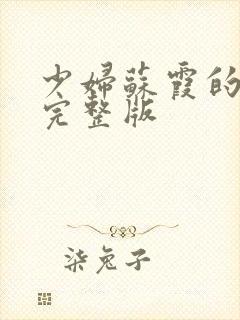 少婦蘇霞的
完整版
柒兔子